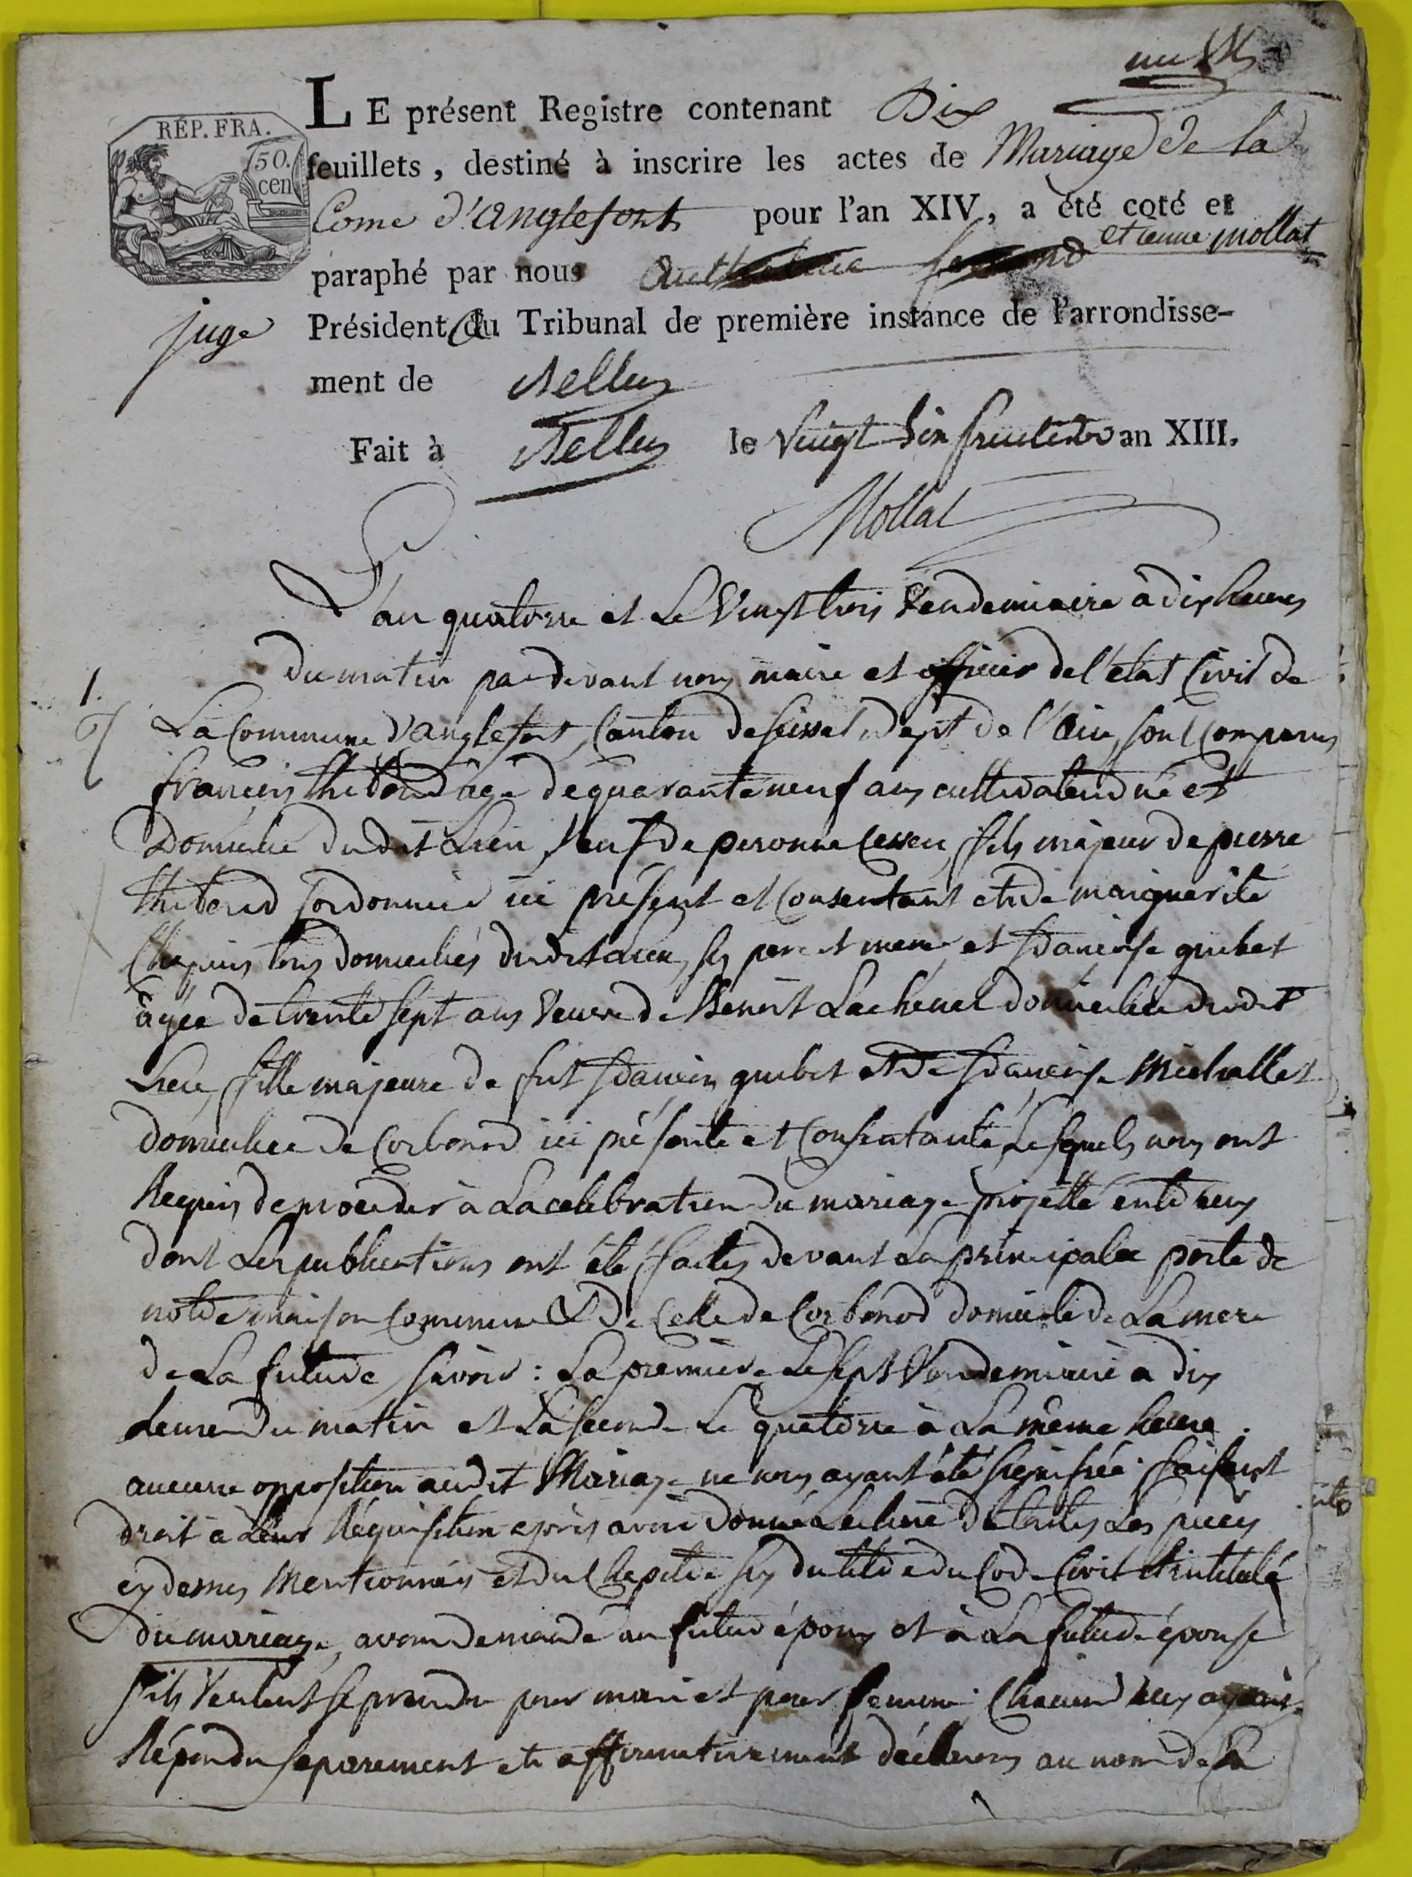 RÉP. FRA.
50.
cen
LE présent Registre contenant Dix
feuillets, destiné à inscrire les actes de Mariage de la
Come d'anglefort pour l'an XIV, a été coté et
paraphé par nous etienne mollat
juge
Président du Tribunal de première instance de l'arrondisse-
ment de Belley
Fait à Belley le Vingt Six fructidor an XIII.
Mollat
L'an quatorze et Le Vingt trois Vendemiaire à dix heures
du matin pardevant nous maire et officier de l'état Civil de
1.
La Commune d'anglefort, Canton de seissel, dept de l'ain, sont Comparus
françois thiboud âgé de quarante neuf ans cultivateur né et
Domicilié dudit Lieu, Veuf de peronne, fils majeur de pierre
thiboud Cordonnier ici présent et Consentant et de marguerite
Chapuis tous domiciliés dudit Lieu, ses pere et mere, et françoise guibet
âgée de trente sept ans Veuve de Benoît Lachenal domiciliée dudit
Lieu, fille majeure de fut françois guibet et de françoise Michallet
domiciliée de Corbonod ici présente et Consentante, Lesquels nous ont
Requis de proceder à La celebration du mariage projetté entr'eux
dont Les publications ont été faites devant La principale porte de
notre maison Commune & de Celle de Corbonod domicile de La mere
de La future, Savoir : La premiere Le sept Vendemiaire à dix
heures du matin et La seconde Le quatorze à La même heure.
aucune opposition audit Mariage ne nous ayant été signifiée. faisant
droit à Leur Réquisition après avoir donné Lecture de toutes Les pieces
cy dessus Mentionnées et du Chapitre six du titre du Code Civil intitulé
du mariage, avons demandé au futur époux et à La future épouse
s'ils Veulent se prendre pour mari et pour femme. Chacun d'eux ayant
Répondu separement et affirmativement déclarons au nom de La